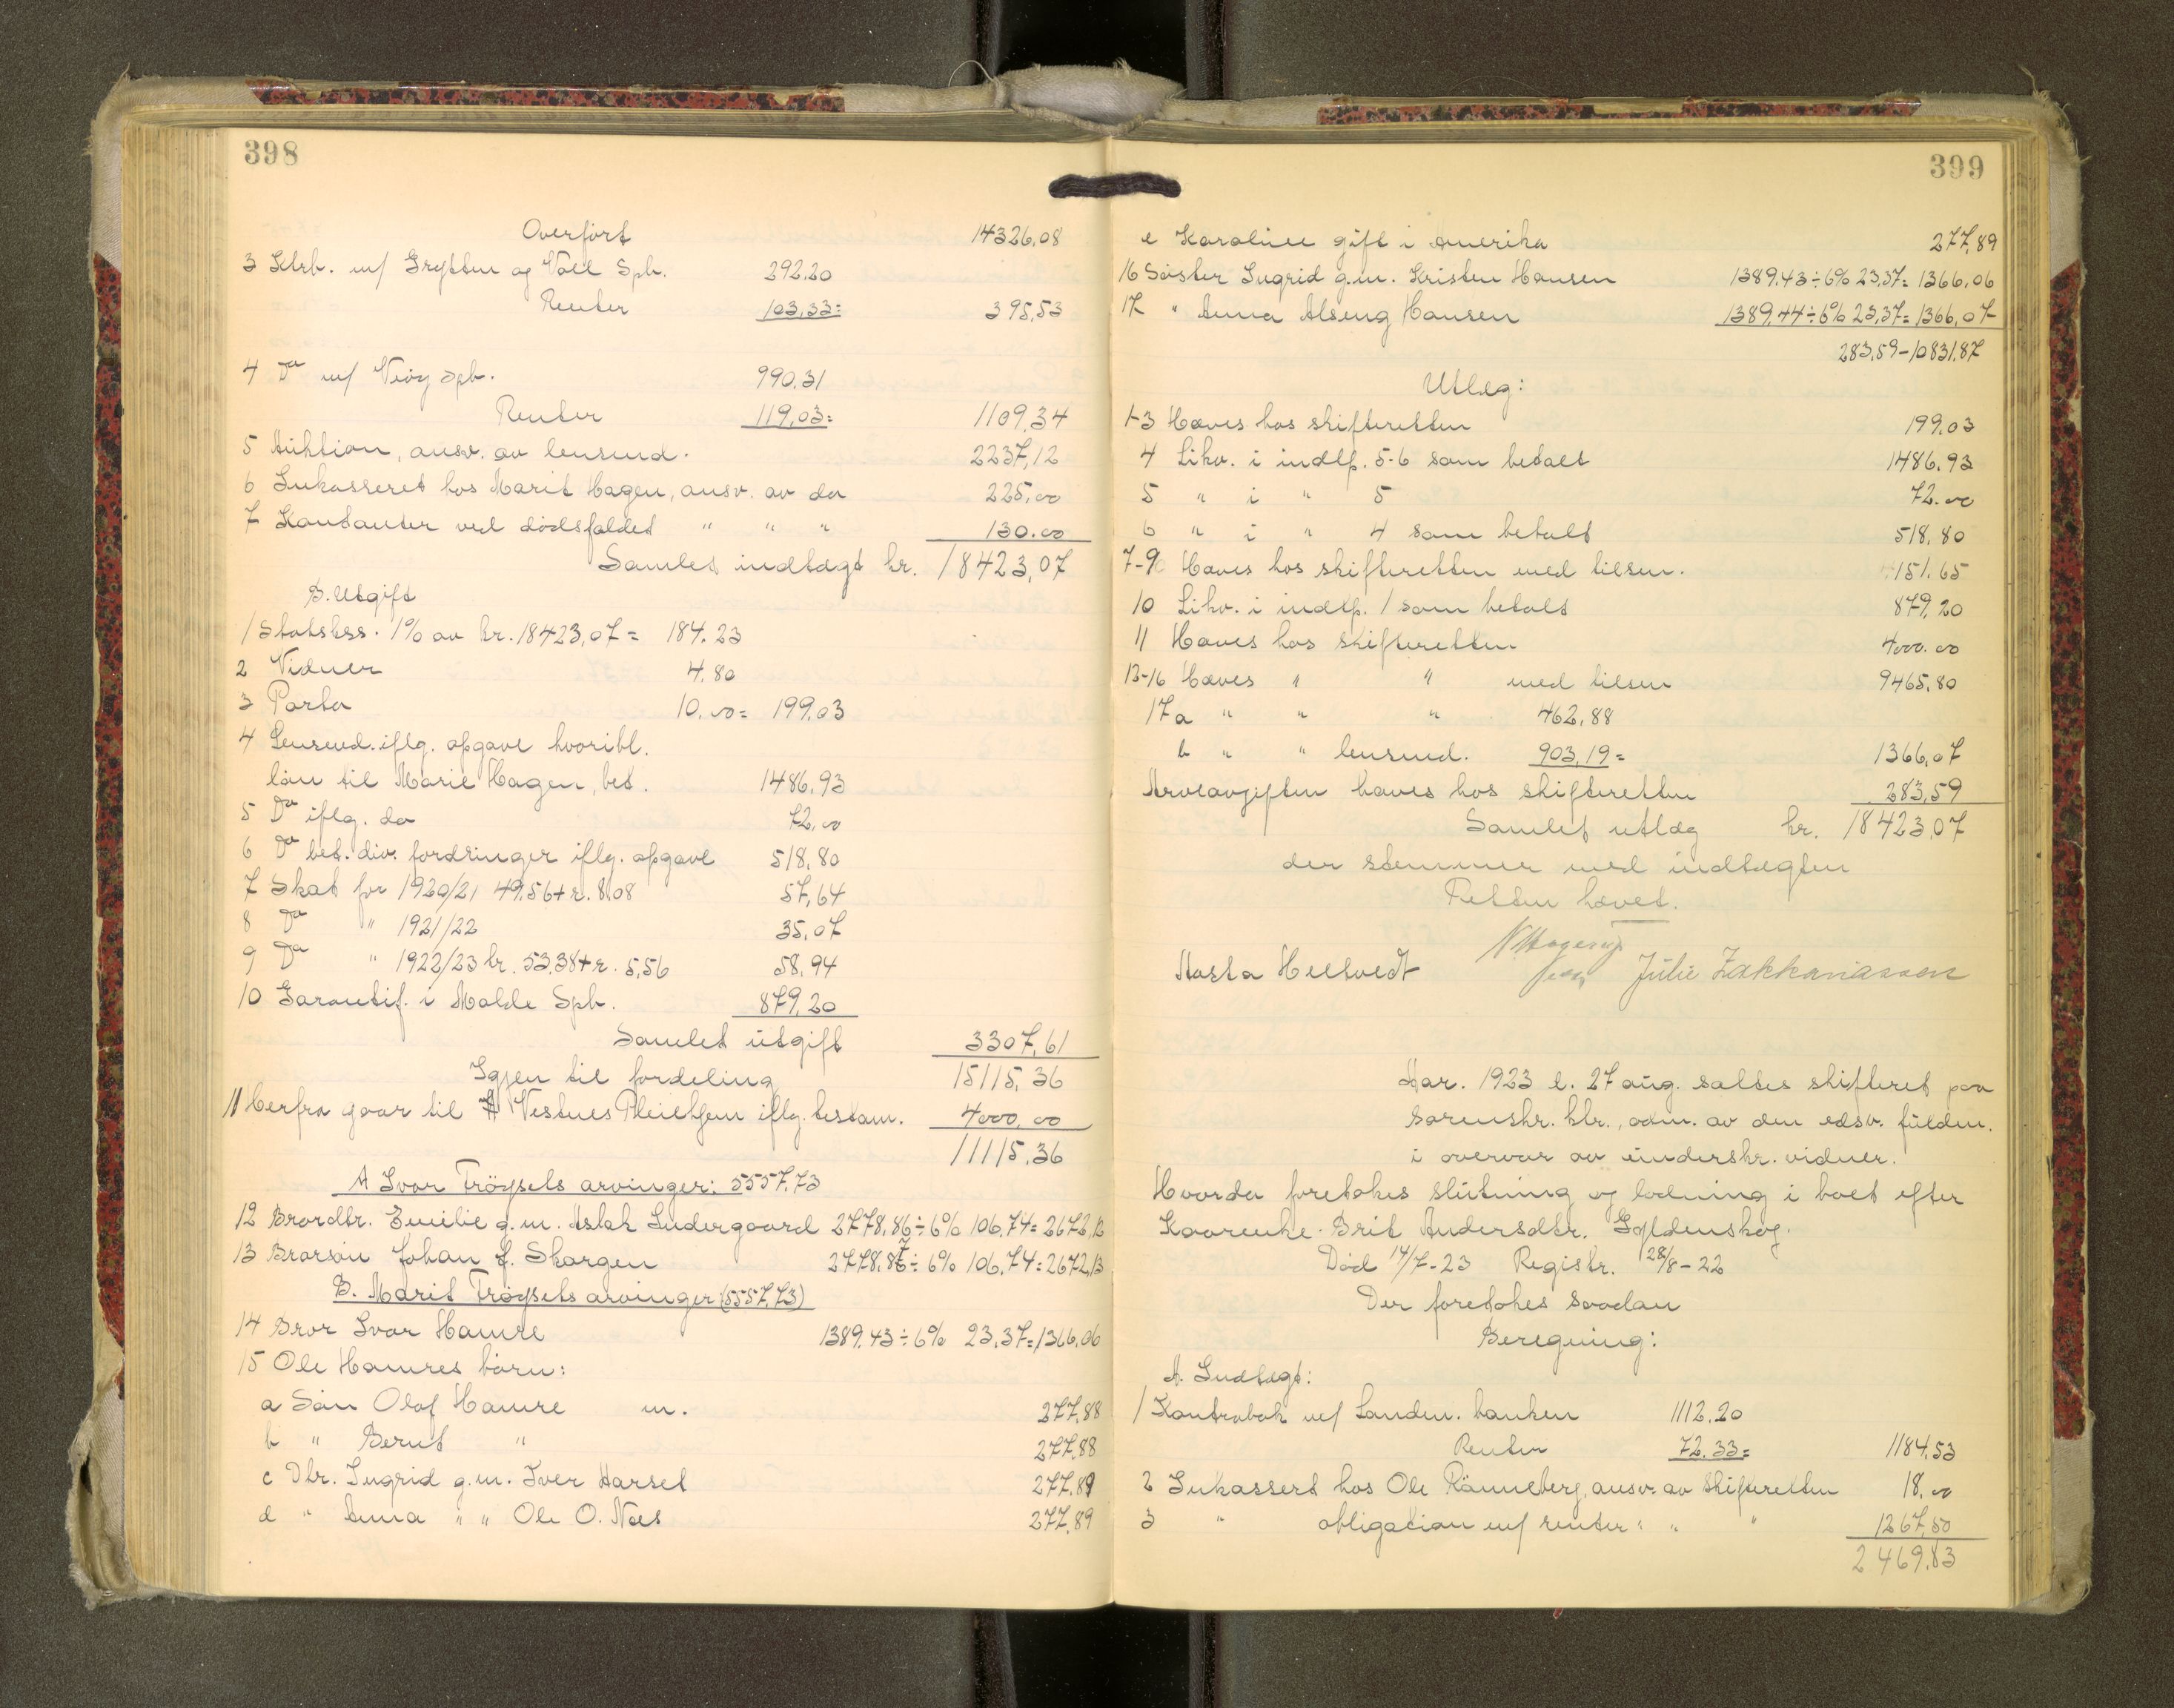 398
Overført 14326,08
3 Ktrb. m/ Grytten og Voll Spb. 292.20
Renter 103,33= 395,53
4 Do m/ Veøy Spb. 990.31
Renter 119,03= 1109,34
5 Auktion, ansv. av lensmd. 2237,12
6 Inkasseret hos Marit Hagen, ansv. av do 225,00
7 Kontanter ved dødsfaldet " " " 130.00
Samlet indtægt kr. 18423,07
B. Utgift
1 Statskss. 1% av kr. 18423,07= 184.23
2 Vidner 4.80
3 Porto 10.00= 199.03
4 Lensmd. iflg. opgave hvoribl.
lån til Marit Hagen, bet. 1486,93
5 Do iflg. do 72,00
6 Do bet. div. fordringer iflg. opgave 518,80
7 Skat for 1920/21 49,56+r. 8,08 57,64
8 Do " 1921/22 35,07
9 Do " 1922/23 kr. 53.38+r. 5,56 58,94
10 Garantif. i Molde Spb. 879,20
Samlet utgift 3307,61
Igjen til fordeling 15115,36
11 Herfra gaar til Vestnes Pleiehjem iflg. testam. 4000,00
11115,36
A Ivar Trøysets arvinger: 5557,73
12 Brordtr. Emilie g.m. Aslak Indergaard 2778,86÷6% 106,74=2672,12
13 Brorsøn Johan J. Skorgen 2778,87÷6% 106,74=2672,13
B. Marit Trøysets arvinger (5557,73)
14 Bror Ivar Hamre 1389,43÷6% 23,37=1366,06
15 Ole Hamres børn:
a Søn Olaf Hamre m. 277,88
b " Bernt " 277,88
c Dtr. Ingrid g.m. Iver Harset 277,89
d " Anna " " Ole O. Næs 277,89
399
e Karoline gift i Amerika 277,89
16 Søster Ingrid g.m. Kristen Hansen 1389,43÷6% 23,37= 1366,06
17 " Anna Alseng Hansen 1389,44÷6% 23,37= 1366,07
283,59-10831,87
Utlæg:
1-3 Hæves hos skifteretten 199,03
4 Likv. i indtp. 5-6 som betalt 1486,93
5 " i " 5 72.00
6 " i " 4 som betalt 518,80
7-9 Hæves hos skifteretten med tilsm. 151,65
10 Likv. i indtp. 1 som betalt 879,20
11 Hæves hos skifteretten 4000.00
12-16 Hæves " " med tilsm 9465,80
17a " " " 462,88
b " " lensmd. 903,19= 1366,07
Arveavgiften hæves hos skifteretten 283,59
Samlet utlæg kr. 18423,07
der stemmer med indtægten
Retten hævet.
Aasta Heltvedt Julie Zakkariassen
Aar. 1923 d. 27 aug. sattes skifteret paa
sorenskr. ktr., adm. av den edsv. fuldm.
i overvær av underskr. vidner.
Hvorda foretokes slutning og lodning i boet efter
Kaarenke Brit Andersdtr. Gyldenskog.
Død 14/7-23 Registr. 28/8-22
Der foretokes saadan
Beregning:
A. Indtægt:
1 Kontrabok m/ Landm. banken 1112.20
Renter 72.33= 1184,53
2 Inkassert hos Ole Rønneberg, ansv. av skifteretten 18.00
3 " obligation m/ renter " " " 1267,50
2469,83